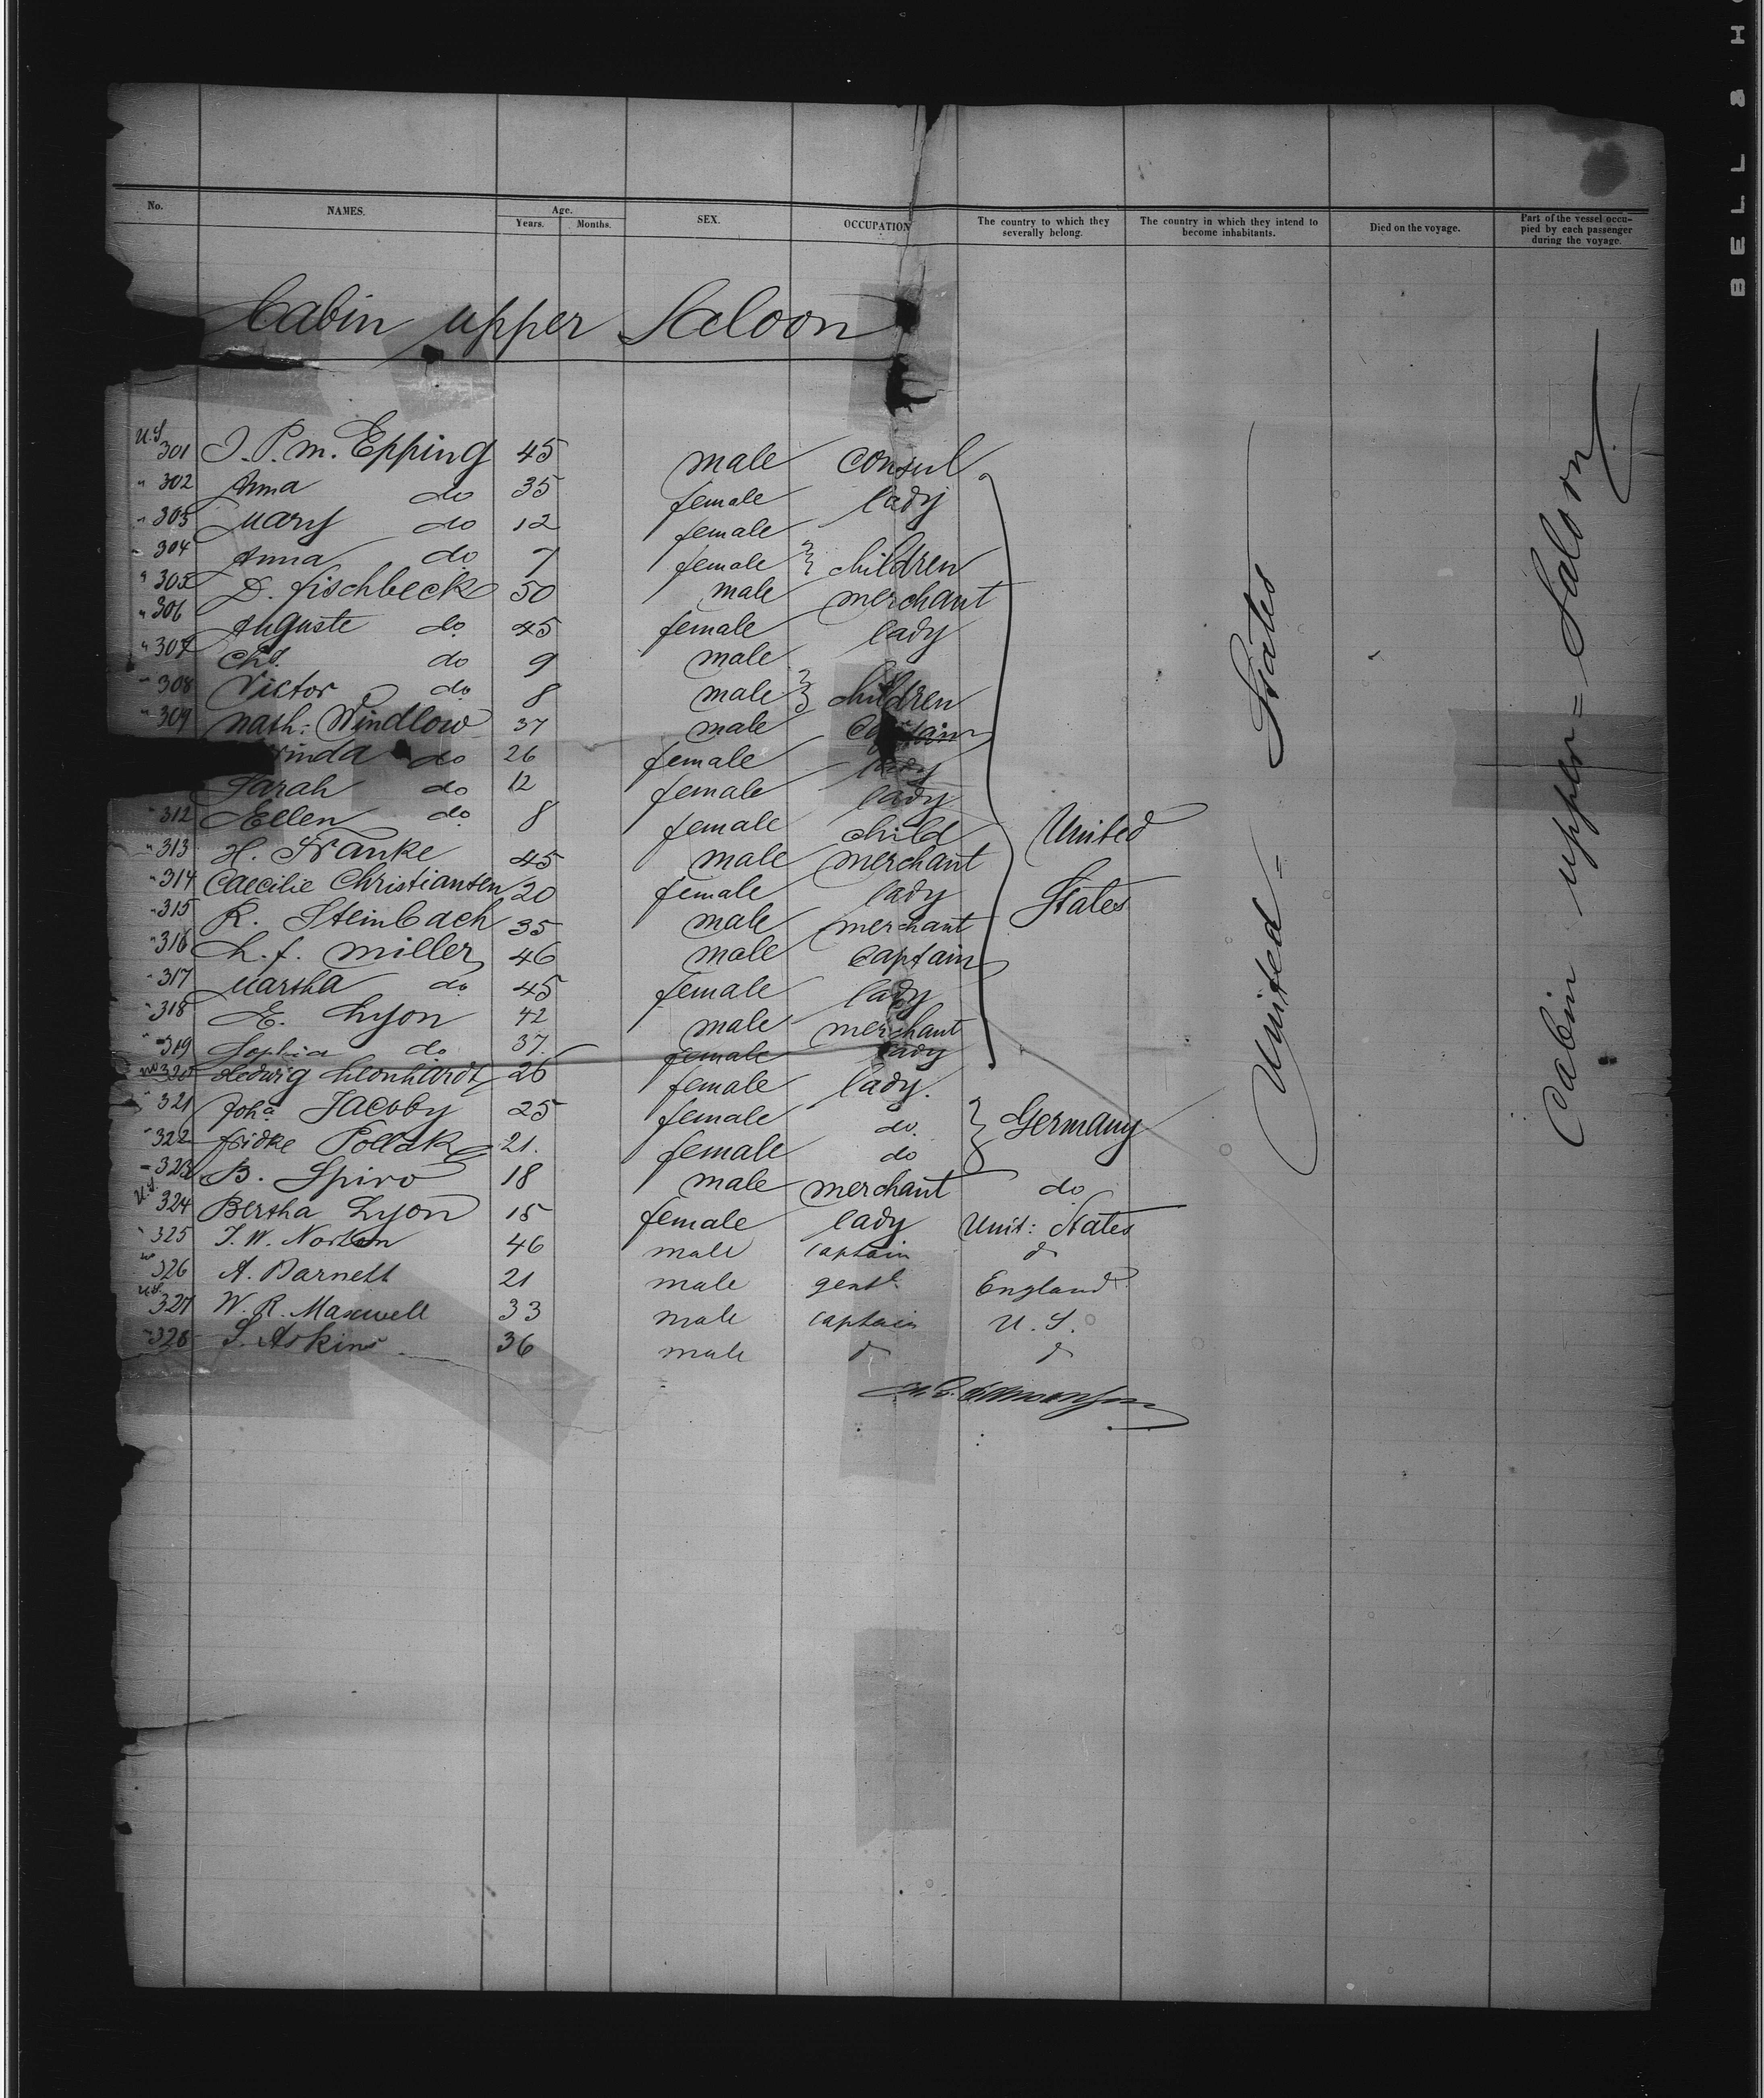 BELL & H
No. NAMES. Age. Years. Months. SEX. OCCUPATION The country to which they severally belong. The country in which they intend to become inhabitants. Died on the voyage. Part of the vessel occupied by each passenger during the voyage.
Cabin upper Saloon
U.S 301 J. P. M. Epping 45 male consul
" 302 Anna do 35 female lady
" 303 Mary do 12 female
" 304 Anna do 7 female } children
" 305 D. Fischbeck 50 male merchant
" 306 Auguste do 45 female lady
" 307 Chs. do 9 male
" 308 Victor do 8 male } children
" 309 Nath: Windlow 37 male Captain
inda do 26 female lady
Sarah do 12 female lady
" 312 Ellen do 8 female child United
" 313 H. Franke 45 male merchant
" 314 Caecilie Christiansen 20 female lady States
" 315 R. Steinbach 35 male merchant
" 316 L. F. Miller 46 male captain
" 317 Martha do 45 female lady
" 318 E. Lyon 42 male merchant
" 319 Sophia do 37. female lady
320 Hedwig Leonhardt 26 female lady.
" 321 Joha Jacoby 25 female do. } Germany
" 322 Fridke Pollak 21. female do
" 323 B. Spiro 18 male merchant do
U.S. 324 Bertha Lyon 15 female lady Unit: States
" 325 J. W. Norton 46 male captain do
326 A. Barnett 21 male gentl. England
U.S. 327 W. R. Maxwell 33 male captain U.S.
" 328 S. Askins 36 male do do
United = States
Cabin upper = Saloon